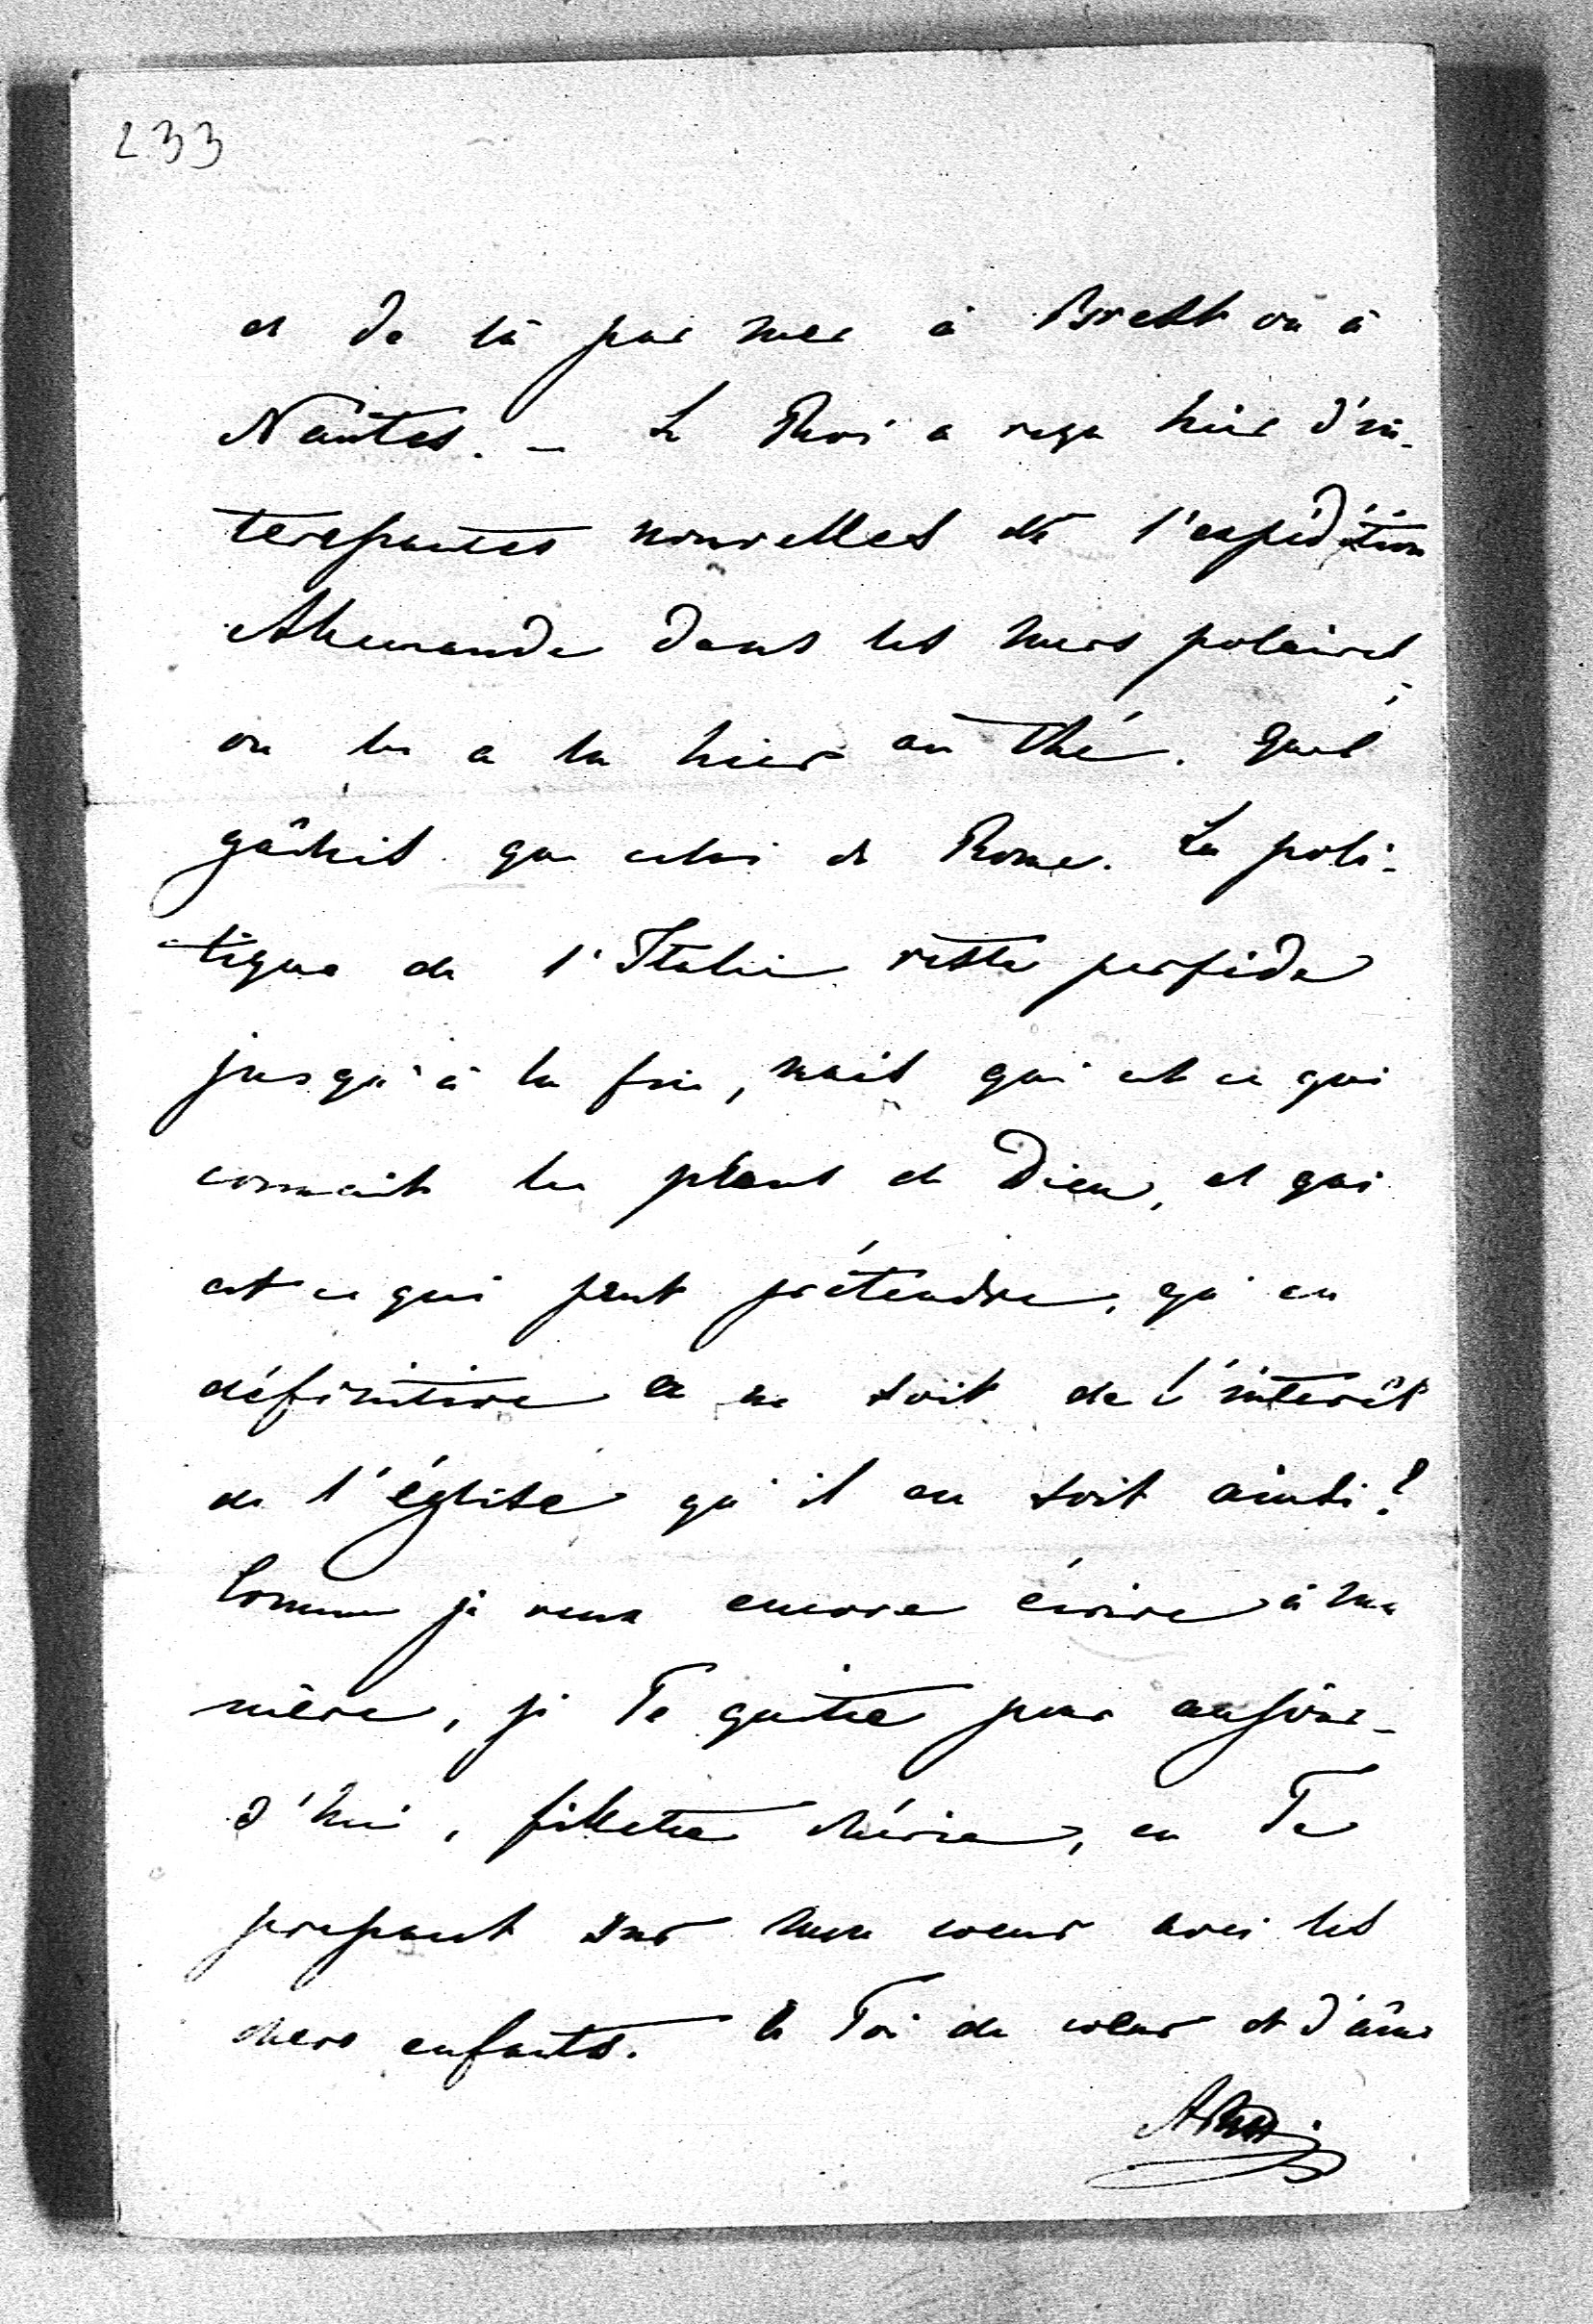 233
et de là par mer à Brest ou à
Nantes. – Le Roi a reçu hier d'in-
teressantes nouvelles de l'expédition
Allemande dans les mers polaires;
on les a lu hier au thé. Quel
gâchis que celui de Rome. La poli-
tique de l'Italie reste perfide
jusqu'à la fin, mais qui est ce qui
connait les plans de Dieu, et qui
est ce qui peut prétendre, qu'en
définitive ce ne soit de l'intérêt
de l'église qu'il en soit ainsi?
Comme je veux encore écrire à ma
mère, je Te quitte pour aujour-
d'hui, fillette chérie, en Te
pressant sur mon coeur avec les
chers enfants. à Toi de coeur et d'âme